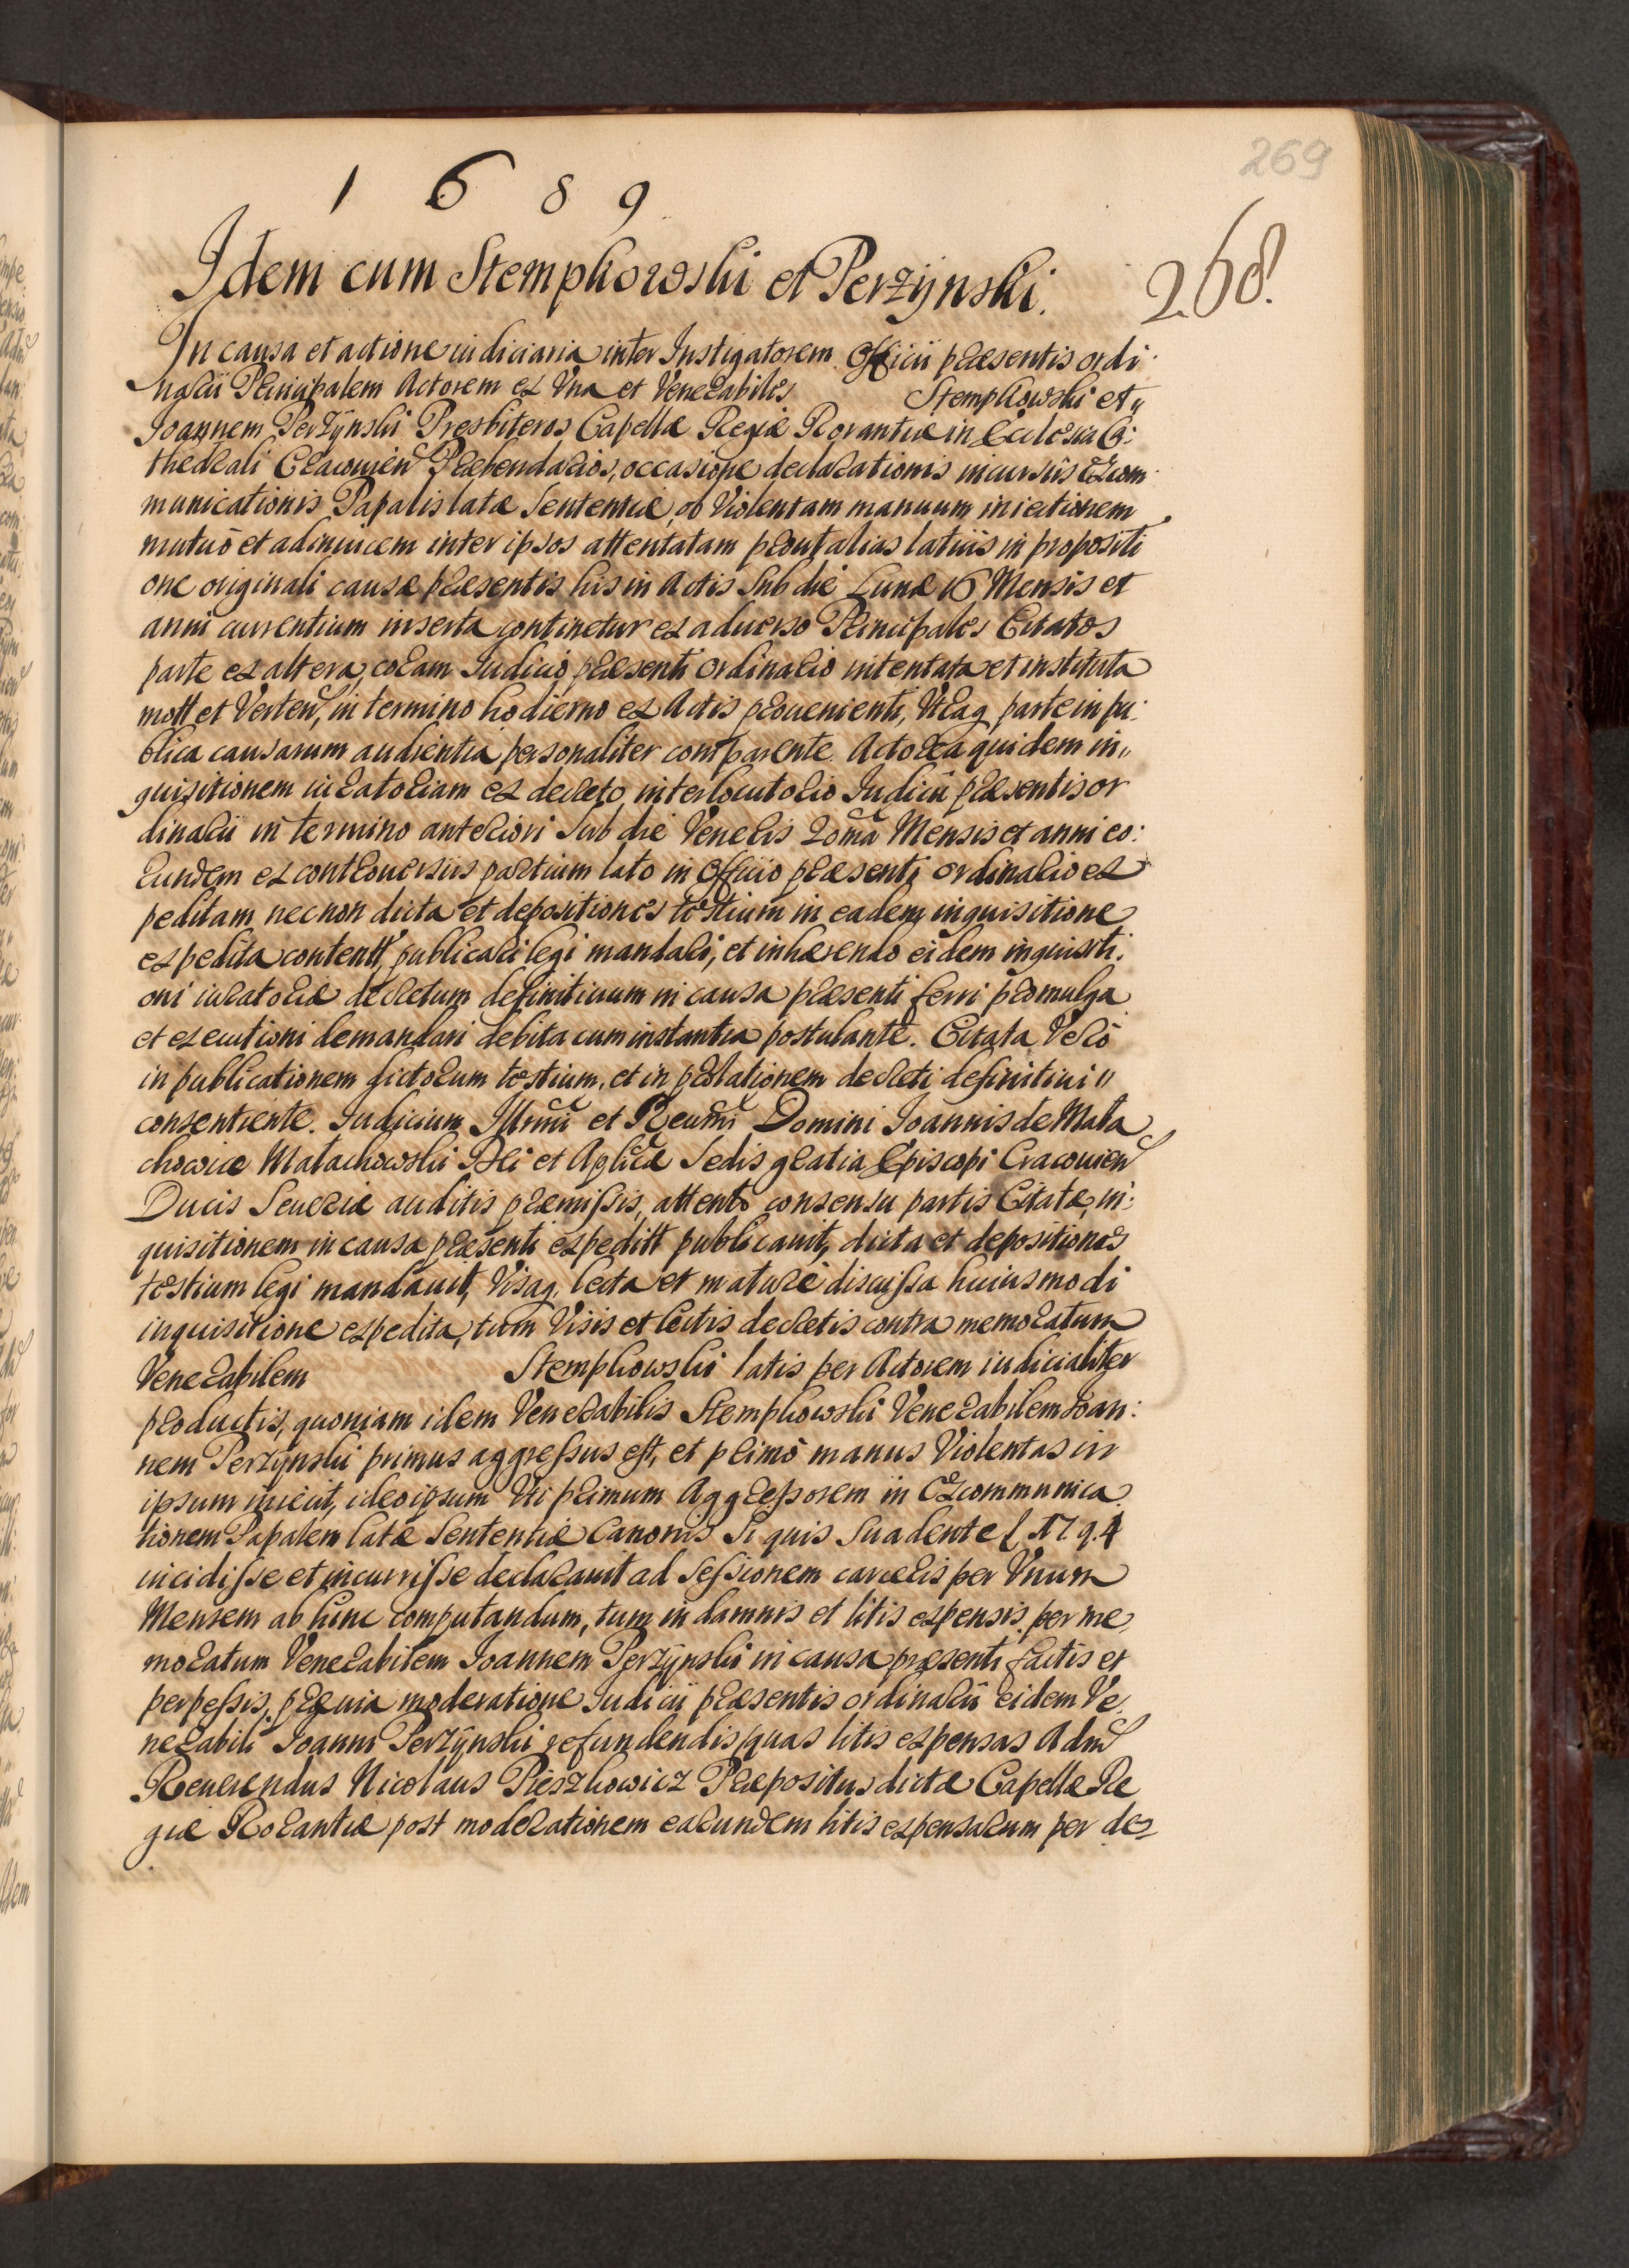 269
1 6 8 9
268.
Idem cum Stempkowski et Perzÿnski.
In causa et actione iudiciaria inter Instigatorem Officii præsentis ordi
narii Principalem Actorem ex Vna et Venerabiles Stempkowski et
Joannem Perzÿnski Presbiteros Capellæ Regiæ Rorantiæ in Ecclesia Ca:
thedrali Cracouien Præbendarios, occasione declarationis incursûs Excom
municationis Papalis latæ Sententiæ, ob Violentam manuum iniectionem
mutuò et adinuicem inter ipsos attentatam prout alias latius in propositi
one originali causæ præsentis his in Actis Sub die Lunæ 16 Mensis et
anni currentium inserta continetur ex aduerso Principales Citatos
parte ex altera, coram Iudicio præsenti ordinario intentata et instituta
mott et Verten, in termino hodierno ex Actis prouenienti, Vtraq parte in pu:
blica causarum audientia personaliter comparente. Actorea quidem in„
quisitionem iuratoriam ex decreto interlocutorio Iudicii præsentis or
dinarii in termino anteriori Sub die Veneris 20ma Mensis et anni eo:
rundem ex controuersiis partium lato in Officio præsenti ordinario ex
peditam necnon dicta et depositiones testium in eadem inquisitione
expedita contentt, publicari legi mandari, et inhærendo eidem inquisiti:
oni iuratoriæ decretum definitiuum in causa præsenti ferri promulga
et executioni demandari debita cum instantia postulante. Citata Verò
in publicationem dictorum testium, et in prolationem decreti definitiui „
consentiente. Iudicium Illrmi et Reuermi Domini Joannis de Mala
chowice Malachowski Dei et Aplicæ Sedis gratia Episcopi Cracouien
Ducis Seueriæ auditis præmissis, attento consensu partis Citatæ, in:
quisitionem in causa præsenti expeditt publicauit, dicta et depositiones
testium legi mandauit, Visaq. lecta et maturè discussa huiusmodi
inquisitione expedita, tum Visis et lectis decretis contra memoratum
Venerabilem Stempkowski latis per Actorem iudicialiter
productis, quoniam idem Venerabilis Stempkowski Venerabilem Joan:
nem Perzÿnski primus aggressus est, et primò manus Violentas in
ipsum iniecit, ideo ipsum Vti primum Aggressorem in Excommunica
tionem Papalem latæ Sententiæ Canonis Si quis Suadente 17. q. 4
incidisse et incurrisse declarauit ad Sessionem carceris per Vnum
Mensem ab hinc computandum, tum in damnis et litis expensis per me,
moratum Venerabilem Joannem Perzÿnski in causa præsenti factis et
perpessis, præuia moderatione Iudicii præsentis ordinarii eidem Ve,
nerabili Joanni Perzÿnski refundendis quas litis expensas Adm
Reuerendus Nicolaus Pieszkowicz Præpositus dictæ Capellæ Re
giæ Rorantiæ post moderationem earundem litis expensarum per de-